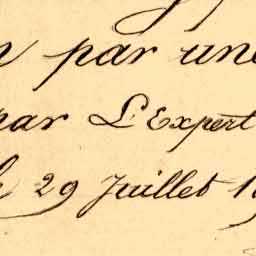 par une
par L'Expert
29 Juillet